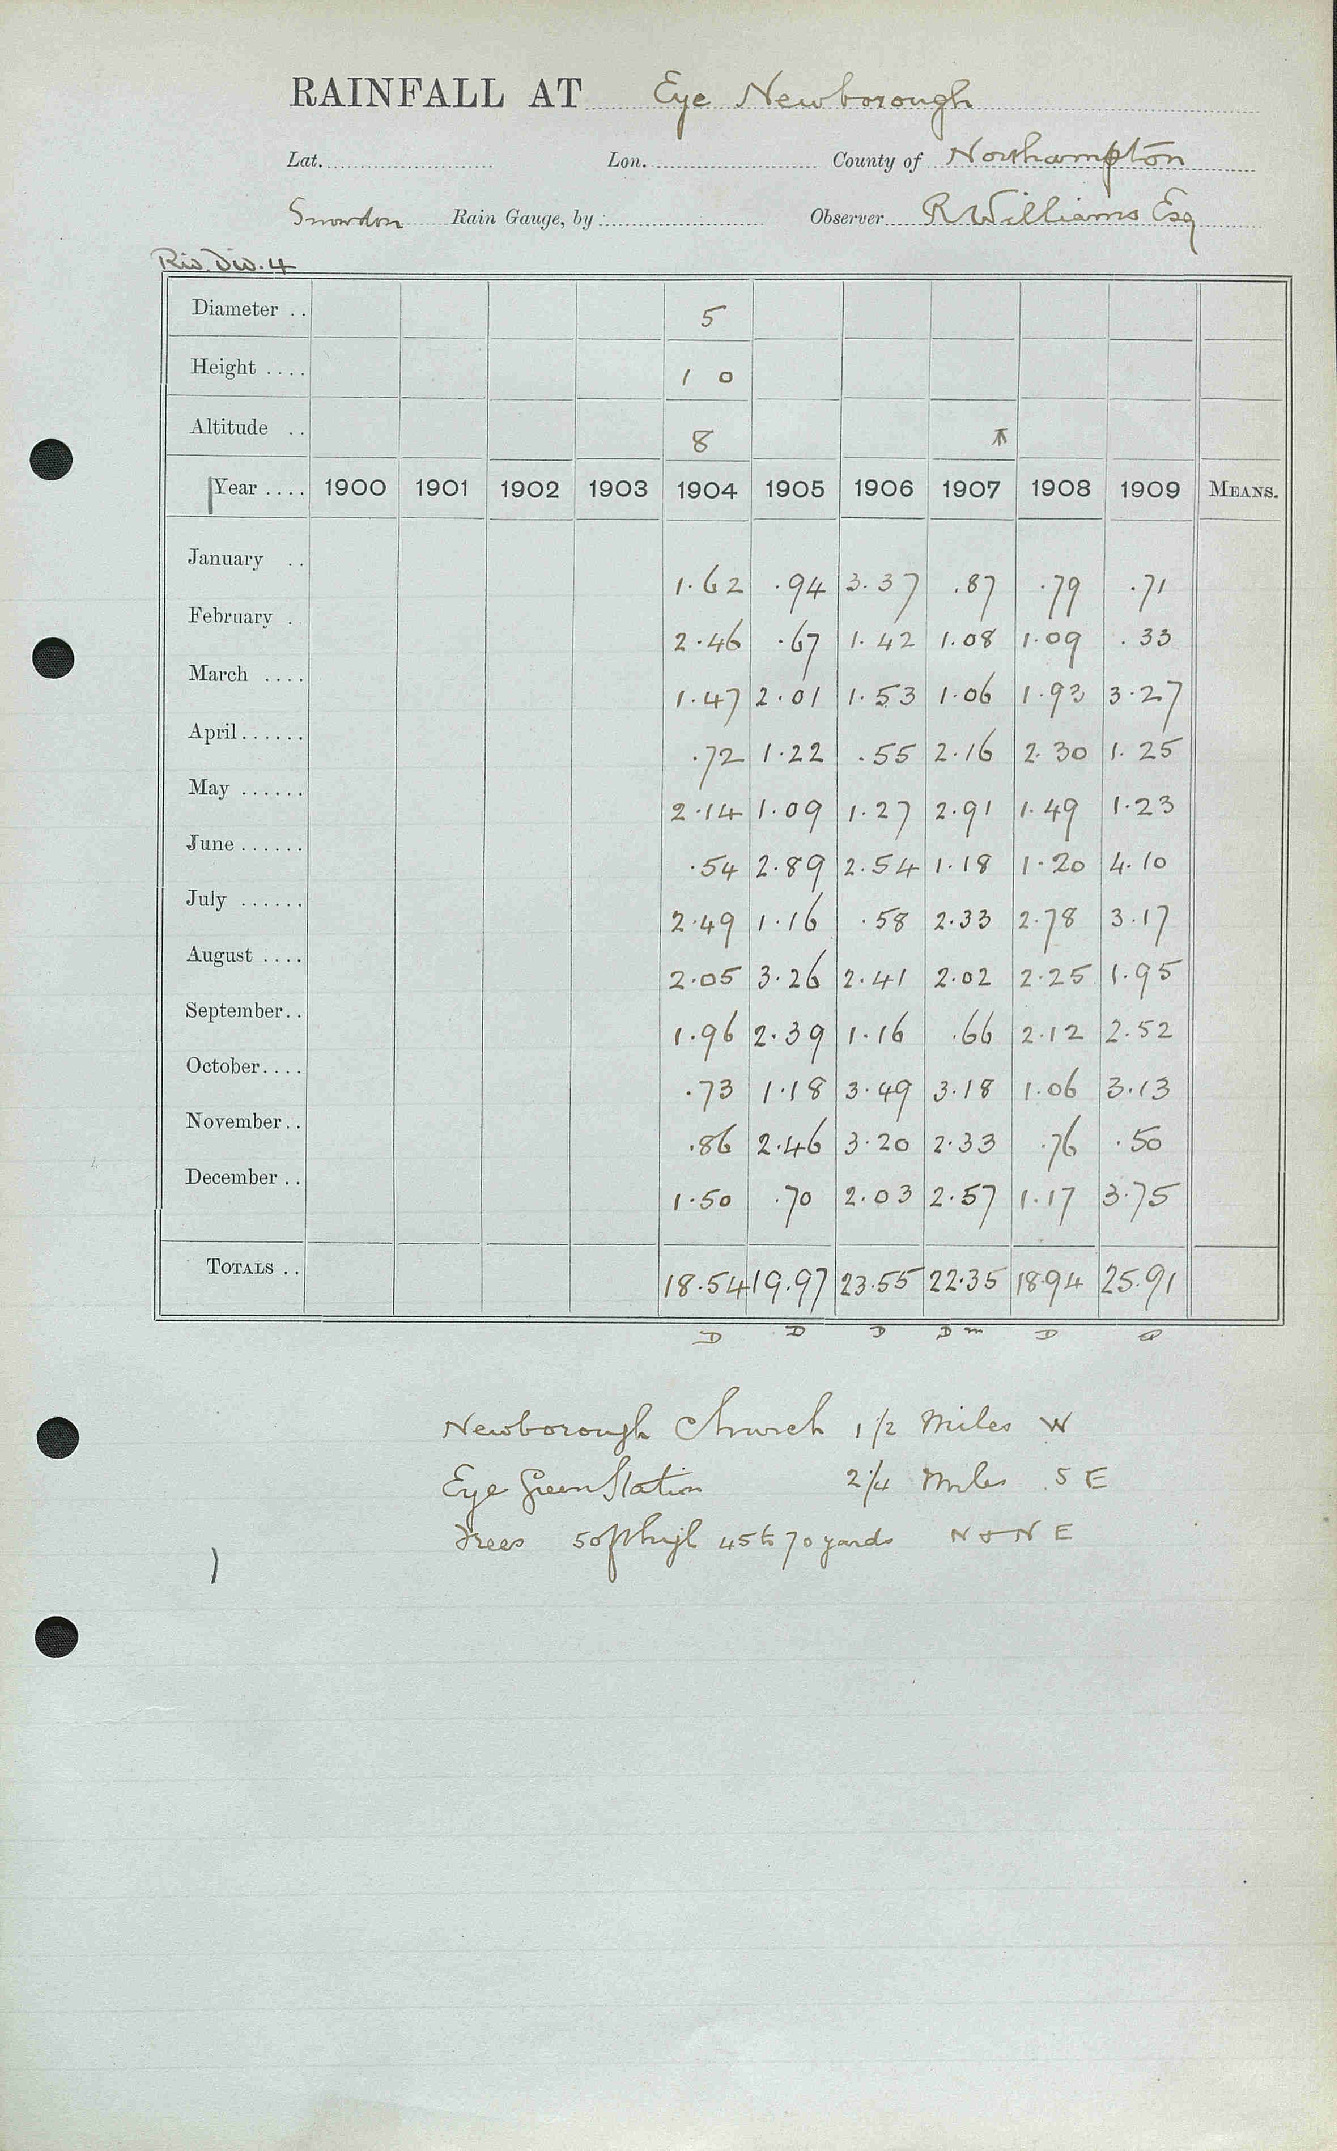 RAINFALL AT Eye Newborough
Lat. Lon. County of Northampton
Snowdon Rain Gauge, by: Observer R Williams Esq
Riv. Div. 4
Diameter .. 5
Height .... 1 0
Altitude .. 8
Year .... 1900 1901 1902 1903 1904 1905 1906 1907 1908 1909 MEANS.
January .. 1.62 .94 3.37 .87 .79 .71
February . 2.46 .67 1.42 1.08 1.09 .33
March .... 1.47 2.01 1.53 1.06 1.93 3.27
April...... .72 1.22 .55 2.16 2.30 1.25
May ...... 2.14 1.09 1.27 2.91 1.49 1.23
June ...... .54 2.89 2.54 1.18 1.20 4.10
July ...... 2.49 1.16 .58 2.33 2.78 3.17
August .... 2.05 3.26 2.41 2.02 2.25 1.95
September.. 1.96 2.39 1.16 .66 2.12 2.52
October.... .73 1.18 3.49 3.18 1.06 3.13
November.. .86 2.46 3.20 2.33 .76 .50
December .. 1.50 .70 2.03 2.57 1.17 3.75
TOTALS .. 18.54 19.97 23.55 22.35 18.94 25.91
D D D D m D
Newborough Church 1 1/2 Miles W
Eye Green Station 2 1/4 Miles S E
Trees 50ft high 45 to 70 yards N & N E